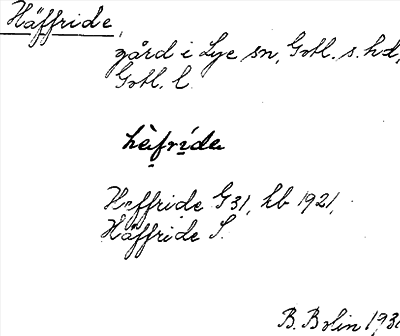 Häffride,
gård i Lye sn, Gotl. s. hd,
Gotl. l.
hä̀frída
Heffride G31, hb 1921,
Häffride S.
B. Bolin